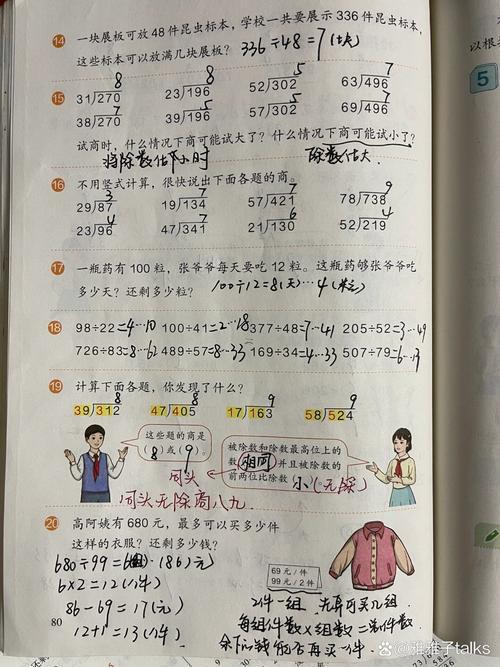 14 一块展板可放 48 件昆虫标本，学校一共要展示 336 件昆虫标本，
这些标本可以放满几块展板？ 336÷48=7(块)
8 8 5 7
15 31)270 23)196 52)302 63)496
7 5 5 7
38)270 39)196 57)302 69)496
试商时，什么情况下商可能试大了？什么情况下商可能试小了？
将除数估小时 除数估大
16 不用竖式计算，很快说出下面各题的商。
3 7 7 9
29)87 19)134 57)421 78)738
4 7 6 4
23)96 47)341 21)130 52)219
17 一瓶药有 100 粒，张爷爷每天要吃 12 粒。这瓶药够张爷爷吃
多少天？还剩多少粒？ 100÷12=8(天)…4(粒)
18 98÷22=4…10 100÷41=2…18 377÷48=7…41 205÷52=3…49
726÷83=8…62 489÷57=8…33 169÷34=4…33 507÷79=6…
19 计算下面各题，你发现了什么？
8 8 9 9
39)312 47)405 17)163 58)524
这些题的商是
(8)或(9)。
被除数和除数最高位上的
数(相同)并且被除数的
前两位比除数 小(无除)
同头
同头无除商八九
20 高阿姨有 680 元，最多可以买多少件
这样的衣服？还剩多少钱？
680÷99=6(组)…86(元)
6×2=12(件)
86-69=17(元)
12+1=13(件)
69 元/件
99 元/2 件
2件一组 先算可买几组
每组件数×组数=总件数
余下的钱能否再买一件
80
以根
5
雅雅子talks